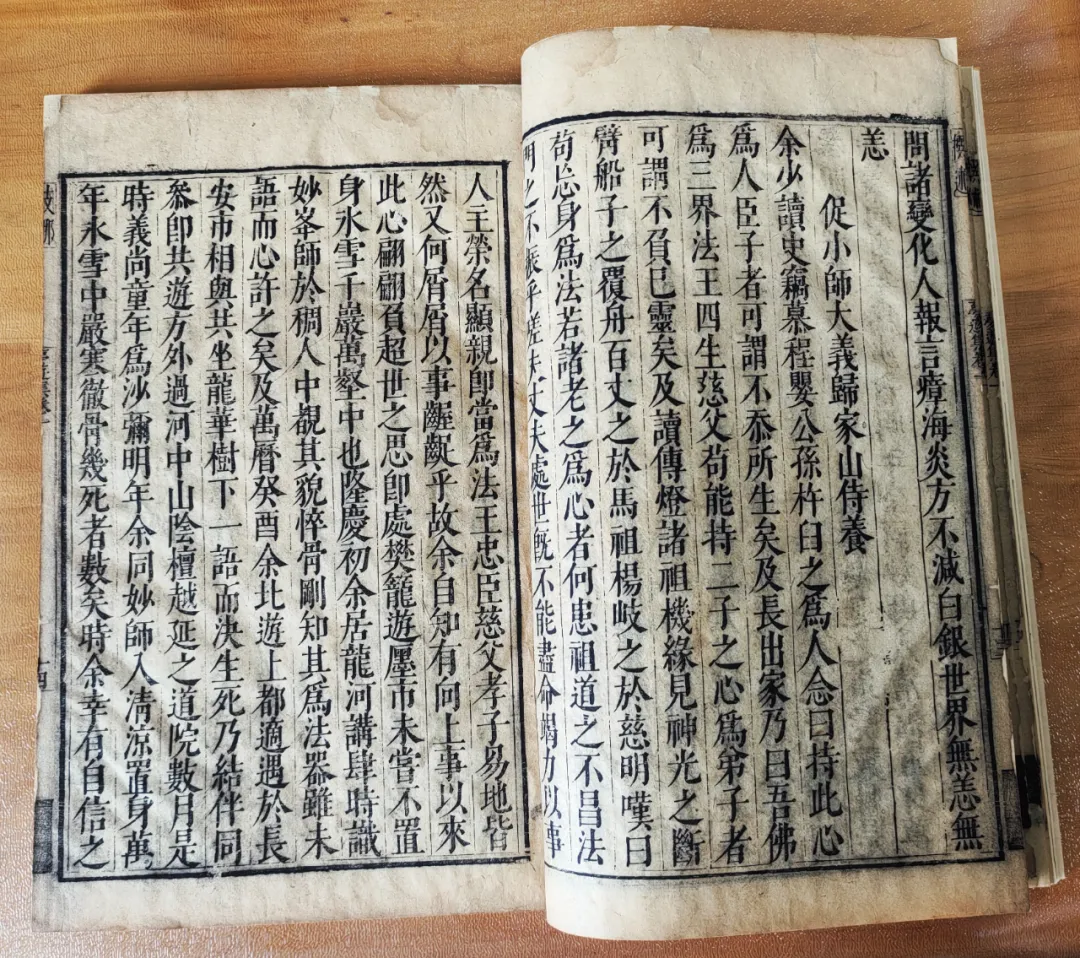 問諸變化人報言瘴海炎方不減白銀世界無恙無
恙
促小師大義歸家山侍養
余少讀史竊慕程嬰公孫杵臼之為人念曰持此心
為人臣子者可謂不忝所生矣及長出家乃曰吾佛
為三界法王四生慈父苟能持二子之心為弟子者
可謂不負已靈矣及讀傳燈諸祖機緣見神光之斷
臂船子之覆舟百丈之於馬祖楊岐之於慈明嘆曰
苟忘身為法若諸老之為心者何患祖道之不昌法
明之不振乎嗟夫丈夫處世既不能盡命竭力以事
人王榮名顯親即當為法王忠臣慈父孝子易地皆
然又何屑屑以事齷齪乎故余自知有向上事以來
此心翩翩負超世之思即處樊籠遊廛市未嘗不置
身氷雪千巖萬壑中也隆慶初余居龍河講肆時識
妙峯師於稠人中覩其貌悴骨剛知其為法器雖未
語而心許之矣及萬曆癸酉余北遊上都適遇於長
安市相與共坐龍華樹下一語而決生死乃結伴同
叅即共遊方外過河中山陰檀越延之道院數月是
時義尚童年為沙彌明年余同妙師入清涼置身萬
年氷雪中嚴寒徹骨幾死者數矣時余幸有自信之